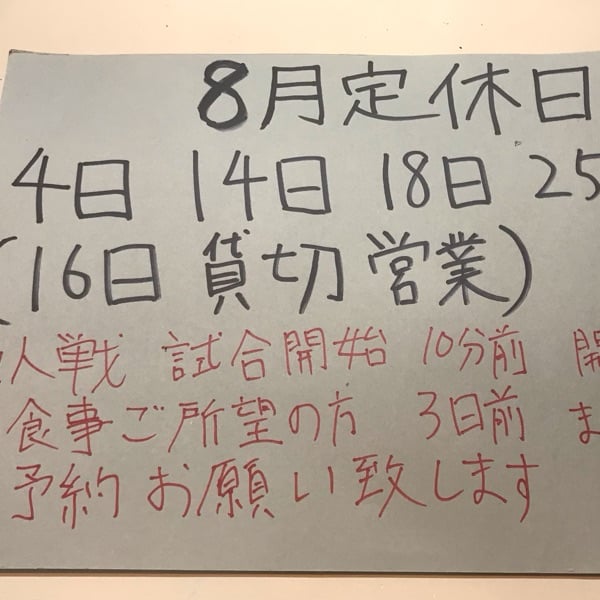 8月定休日
4日 14日 18日 25
(16日 貸切営業)
人戦 試合開始 10分前 開
食事ご所望の方 3日前 ま
予約お願い致します